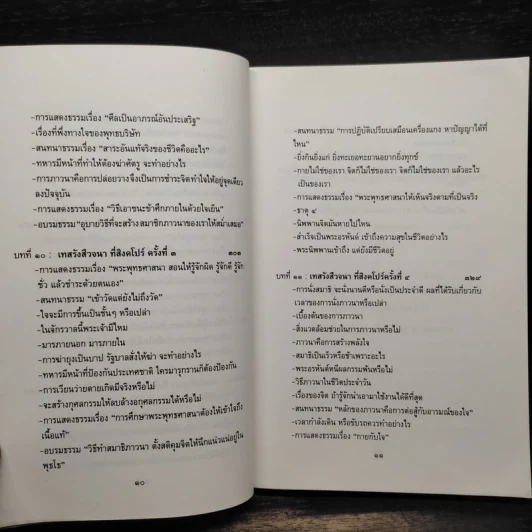 -การแสดงธรรมเรื่อง “ศีลเป็นอาภรณ์อันประเสริฐ”
-เรื่องที่พึ่งทางใจของพุทธบริษัท
-สนทนาธรรมเรื่อง “สาระอันแท้จริงของชีวิตคืออะไร”
-ทหารมีหน้าที่ทำให้ต้องฆ่าศัตรู จะทำอย่างไร
-การภาวนาคือการปล่อยวางจึงเป็นการชำระจิตทำใจให้อยู่จุดเดียว
ลงปัจจุบัน
-การแสดงธรรมเรื่อง “วิธีเอาชนะข้าศึกภายในด้วยใจเย็น”
-อบรมธรรม“อุบายวิธีที่จะสร้างสมาชิกภาวนาของเราให้สม่ำเสมอ”
บทที่ ๑๐ : เทสรังสีวจนา ที่สิงคโปร์ ครั้งที่ ๓ ๓๐๑
-การแสดงธรรมเรื่อง “พระพุทธศาสนา สอนให้รู้จักผิด รู้จักดี รู้จัก
ชั่ว แล้วชำระด้วยตนเอง”
-สนทนาธรรม “เข้าวัดแต่ยังไม่ถึงวัด”
-ใจจะมีการขึ้นเป็นชั้นๆ หรือเปล่า
-ในจักรวาลนี้พระเจ้ามีไหม
-มารภายนอก มารภายใน
-การฆ่ายุงเป็นบาป รัฐบาลสั่งให้ฆ่า จะทำอย่างไร
-ทหารมีหน้าที่ป้องกันประเทศชาติ ใครมารุกรานก็ต้องป้องกัน
-การเวียนว่ายตายเกิดมีจริงหรือไม่
-จะสร้างกุศลกรรมให้ลบล้างอกุศลกรรมได้หรือไม่
-การแสดงธรรมเรื่อง “การศึกษาพระพุทธศาสนาต้องให้เข้าใจถึง
เนื้อแท้”
-อบรมธรรม “วิธีทำสมาธิภาวนา ตั้งสติคุมจิตให้นึกแน่วแน่อยู่ใน
พุทโธ”
๑๐
-สนทนาธรรม “การปฏิบัติเปรียบเสมือนเครื่องแกง หาปัญญาได้ที่
ไหน”
-ยิ่งกินยิ่งแก่ ยิ่งทะเยอทะยานอยากยิ่งทุกข์
-กายไม่ใช่ของเรา จิตก็ไม่ใช่ของเรา จิตก็ไม่ใช่ของเรา แล้วอะไร
เป็นของเรา
-การแสดงธรรมเรื่อง “พระพุทธศาสนาให้เห็นจริงตามที่เป็นจริง”
-ธาตุ ๔
-นิพพานจิตมันหายไปไหน
-สำเร็จเป็นพระอรหันต์ เข้าถึงความสุขในชีวิตอย่างไร
-พระนิพพานเข้าถึง แต่ยังมีชีวิตอยู่
บทที่ ๑๑ : เทสรังสีวจนา ที่สิงคโปร์ครั้งที่ ๔ ๓๒๙
-การนั่งสมาธิ จะนั่งนานดีหรือนั่งเป็นประจำดี ผลที่ได้รับเกี่ยวกับ
เวลาของการนั่งภาวนาหรือเปล่า
-เบื้องต้นของการภาวนา
-สิ่งแวดล้อมช่วยในการภาวนาหรือไม่
-ภาวนาคือการสร้างพลังใจ
-สมาธิเป็นเร็วหรือช้าเพราะอะไร
-พระอรหันต์หนีผลกรรมพ้นหรือไม่
-วิธีภาวนาในชีวิตประจำวัน
-เรื่องของจิต ถ้ารู้จักนำเอามาใช้งานได้ดีที่สุด
-สนทนาธรรม “หลักของภาวนาคือการต่อสู้กับอารมณ์ของใจ”
-เวลากำลังเดิน หรือขับรถควรทำอย่างไร
-การแสดงธรรมเรื่อง “กายกับใจ”
๑๑